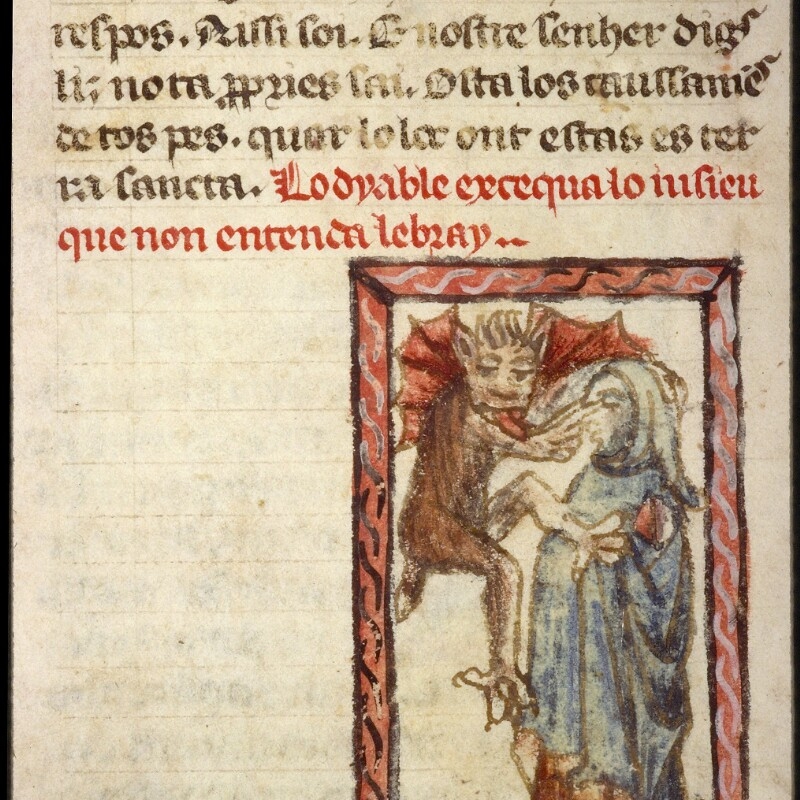 respos. Aissi soi. E nostre senher dig
li; no ta ppries sai. Osta los caussamē
de tos pes. quar lo loc ont estas es ter
ra sancta. Lo dyable excequa lo iusieu
que non entenda lebray..